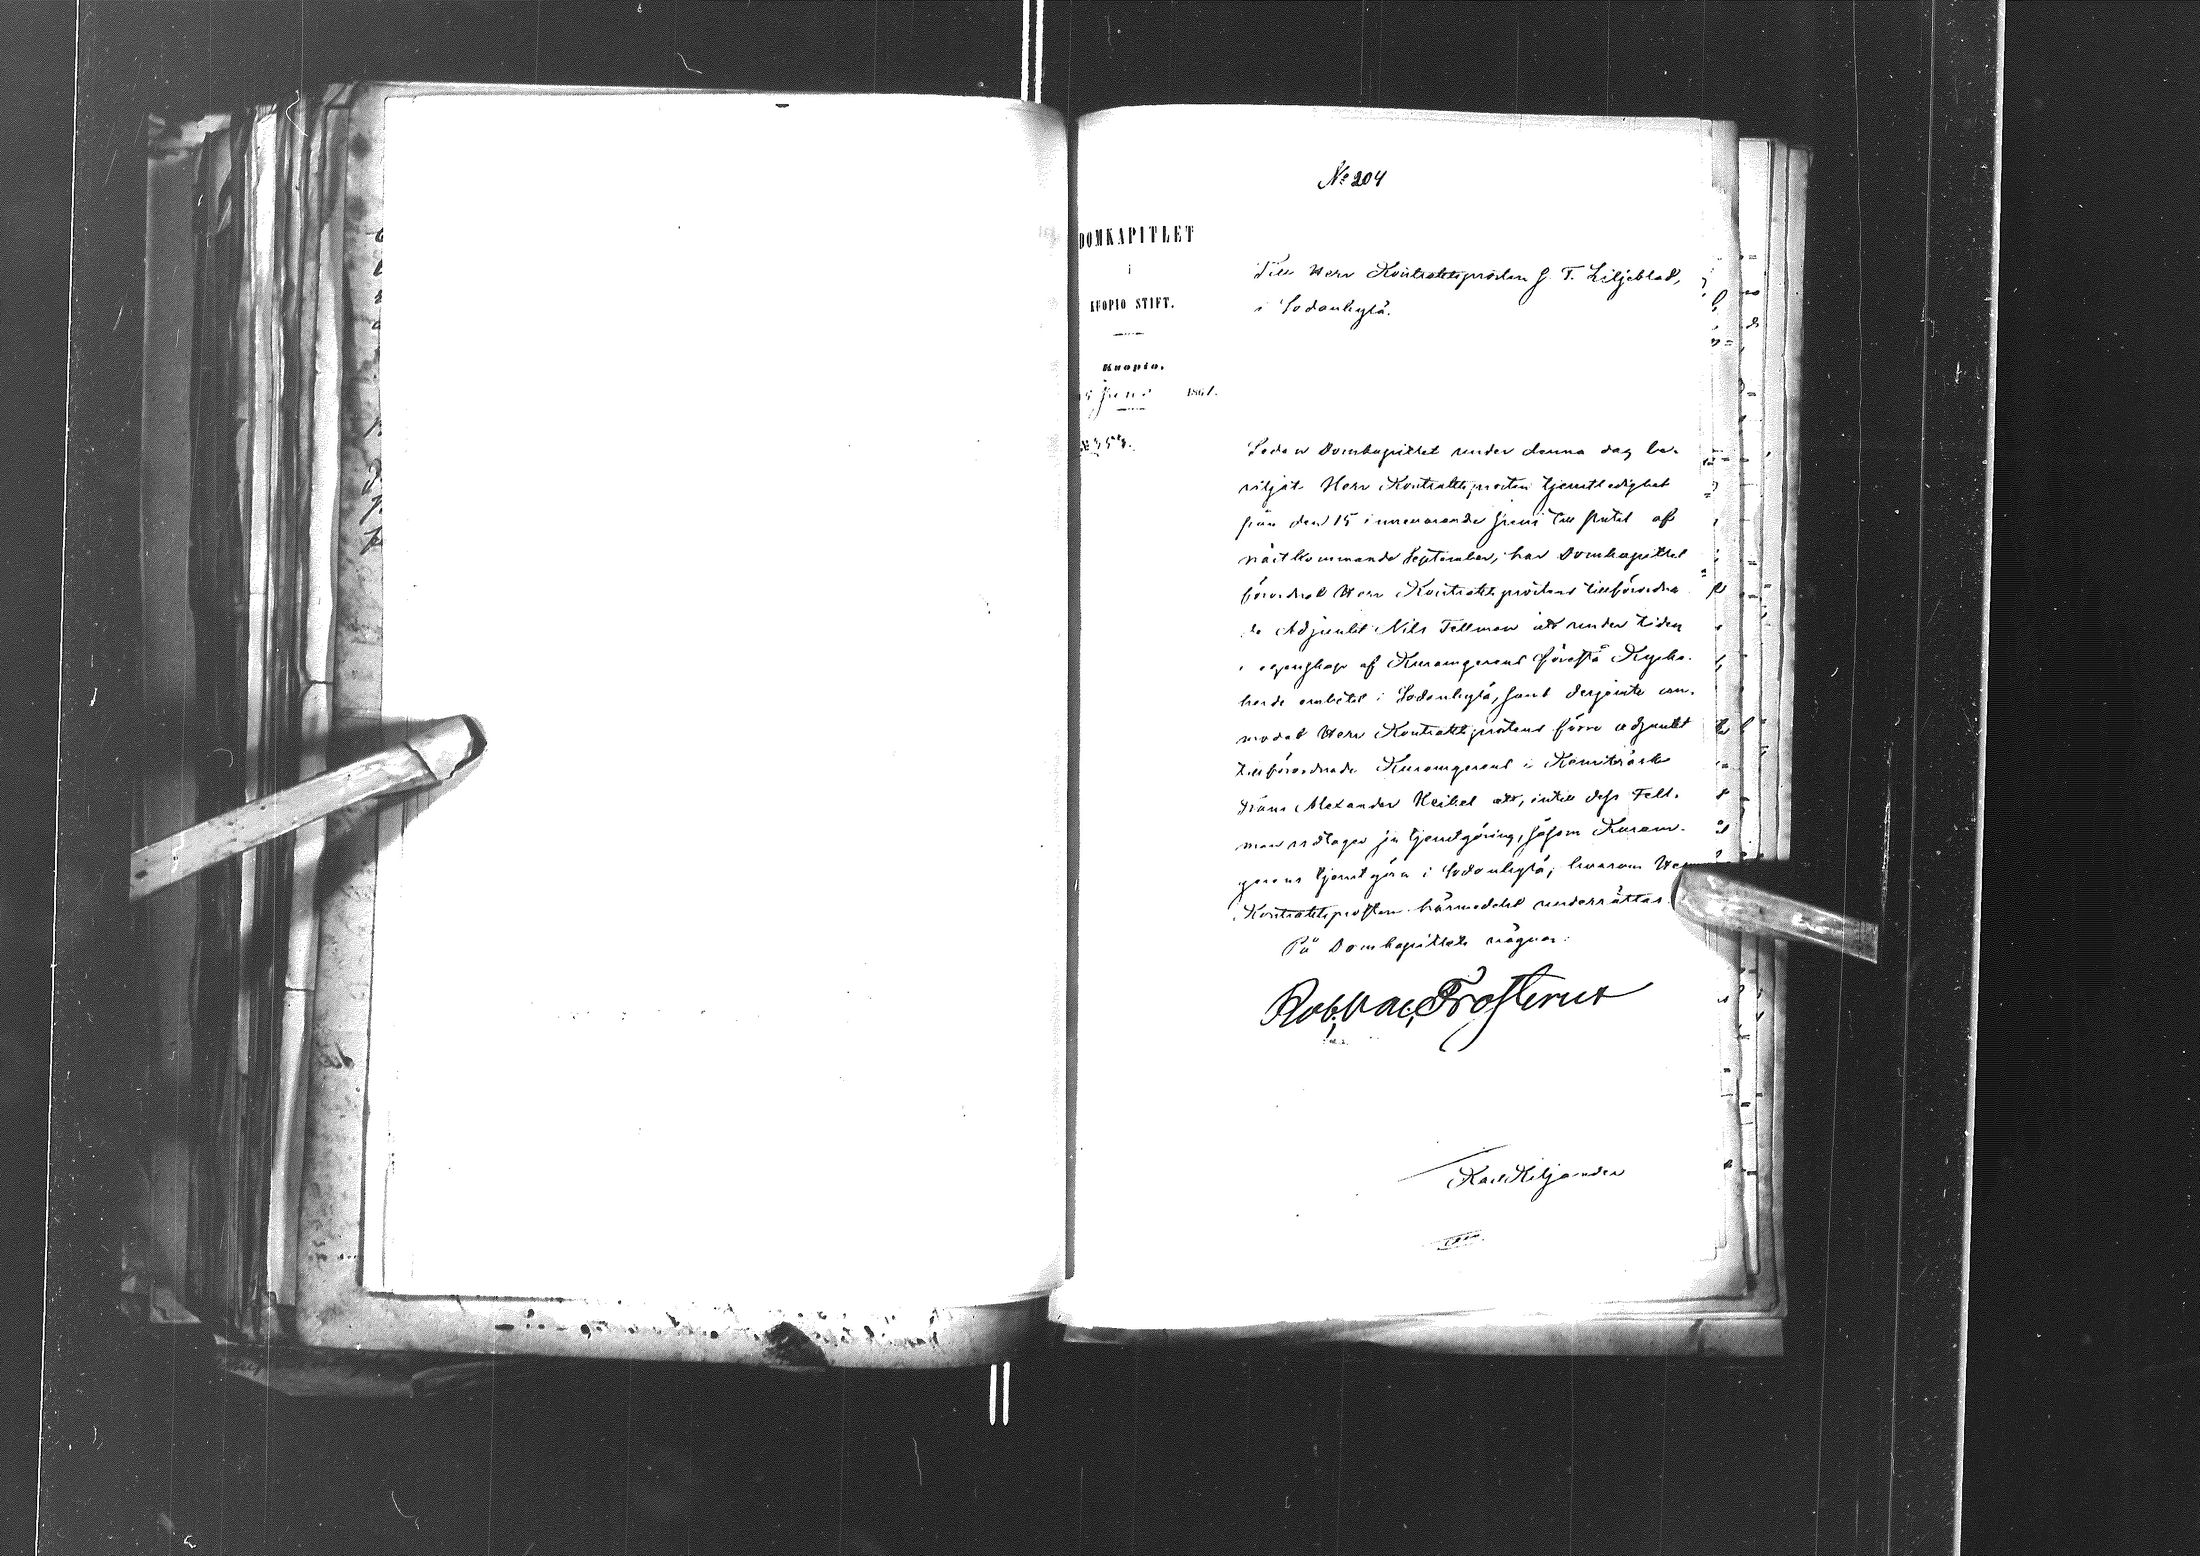 № 204
DOMKAPITLET
i
KUOPIO STIFT.
Kuopio,
Juni 1861.
Till Herr Kontraktsprosten J. T. Liljeblad,
i Sodankylä.
Sedan Domkapitlet under denna dag be-
viljat Herr Kontraktsprosten tjenstledighet
från den 15 innevarande Juni till slutet af
nästkommande September, har Domkapitlet
förordnat Herr Kontraktsprostens tillförordna
de Adjunkt Nils Fellman att under tiden
i egenskap af Kuramgerens förestå Kyrko-
herde embetet i Sodankylä, samt derjemte an-
modat Herr Kontraktsprostens förre adjunkt
tillförordnade Kuramgerens i Kemiträsk
Frans Alexander Heikel att, intill dess Fell-
man vidtager sin tjenstgöring, såsom Kuram-
gerens tjenstgöra i Sodankylä; hvarom Herr
Kontraktsprosten härmedelst underrättas.
På Domkapitlets vägnar:
Rob. Val. Frosterus
Karl Kiljander